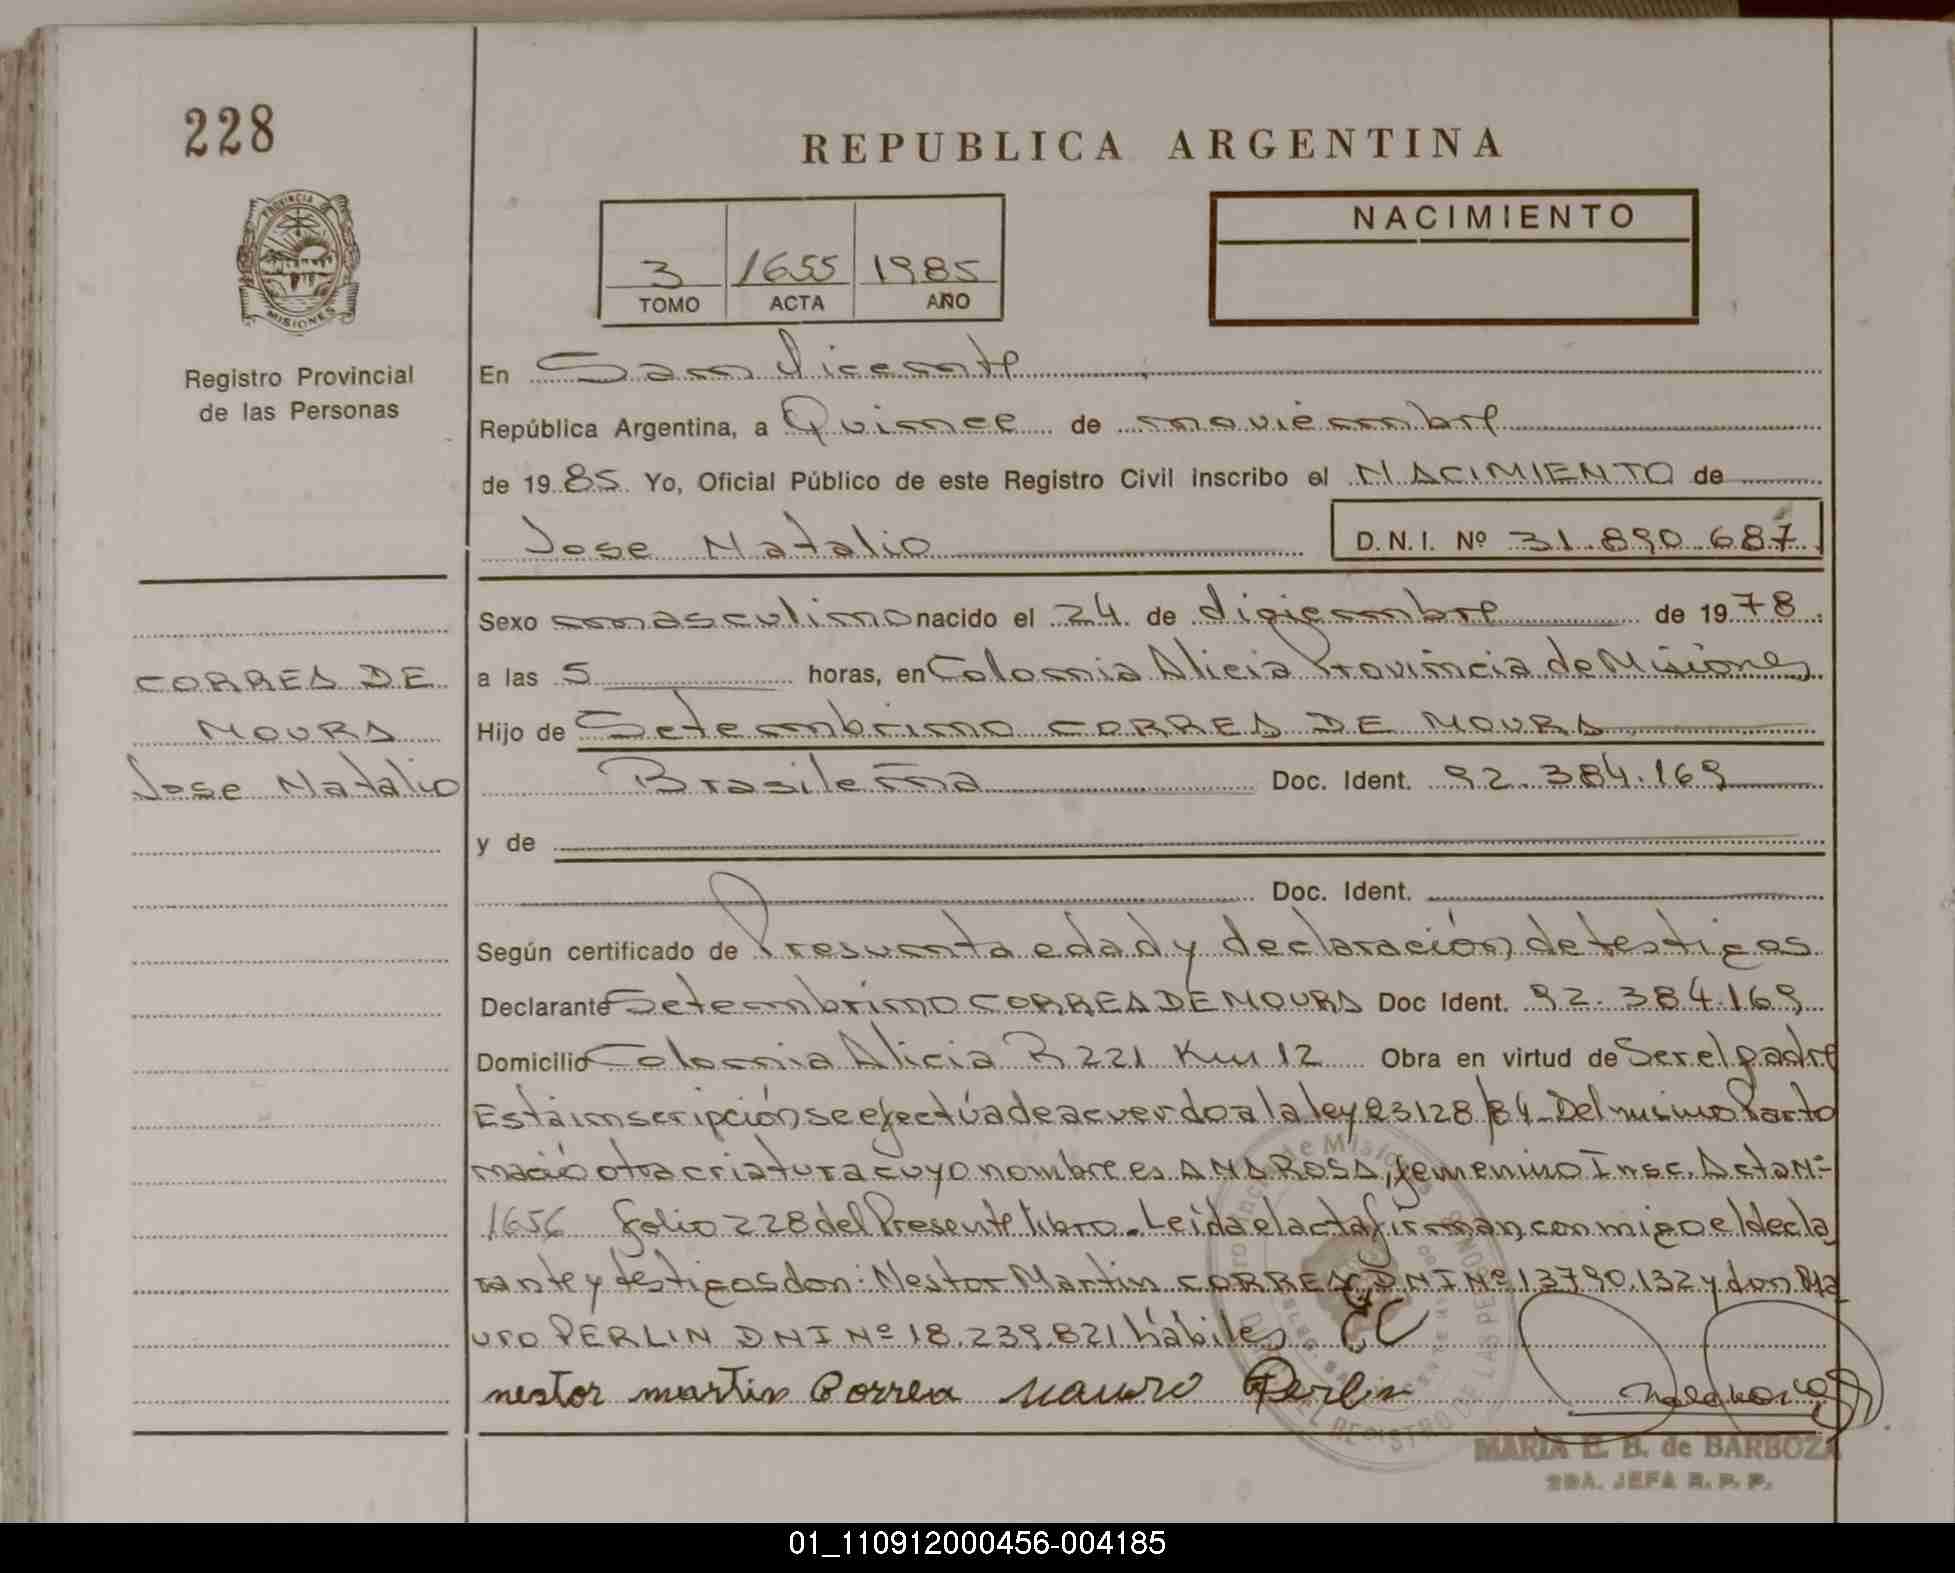 228
REPUBLICA ARGENTINA
PROVINCIA DE
MISIONES
Registro Provincial
de las Personas
3 1655 1985
TOMO ACTA AÑO
NACIMIENTO
En San Vicente
República Argentina, a Quince de noviembre
de 1985 Yo, Oficial Público de este Registro Civil inscribo el NACIMIENTO de
Jose Natalio D.N.I. Nº 31.890.687
Sexo masculino nacido el 24 de diciembre de 1978
a las 5 horas, en Colonia Alicia Provincia de Misiones
CORREA DE
MOURA
Jose Natalio
Hijo de Setembrino CORREA DE MOURA
Brasileña Doc. Ident. 92.384.169
y de
Doc. Ident.
Según certificado de Presunta edad y declaración de testigos
Declarante Setembrino CORREA DE MOURA Doc Ident. 92.384.169
Domicilio Colonia Alicia R 221 Km 12 Obra en virtud de Ser el padre
Esta inscripción se efectúa de acuerdo a la ley 23128/84_Del mismo Parto
nació otra criatura cuyo nombre es ANA ROSA, femenino Insc. Acta Nº
1656 folio 228 del Presente libro. Leída el acta firman conmigo el decla
rante y testigos don: Nestor Martin CORREA DNI Nº 13790.132 y don Ma
uro PERLIN DNI Nº 18.239.821 hábiles
nestor martin Correa mauro Perlin
MARIA E. B. de BARBOZA
2DA. JEFA R. P. P.
01_110912000456-004185